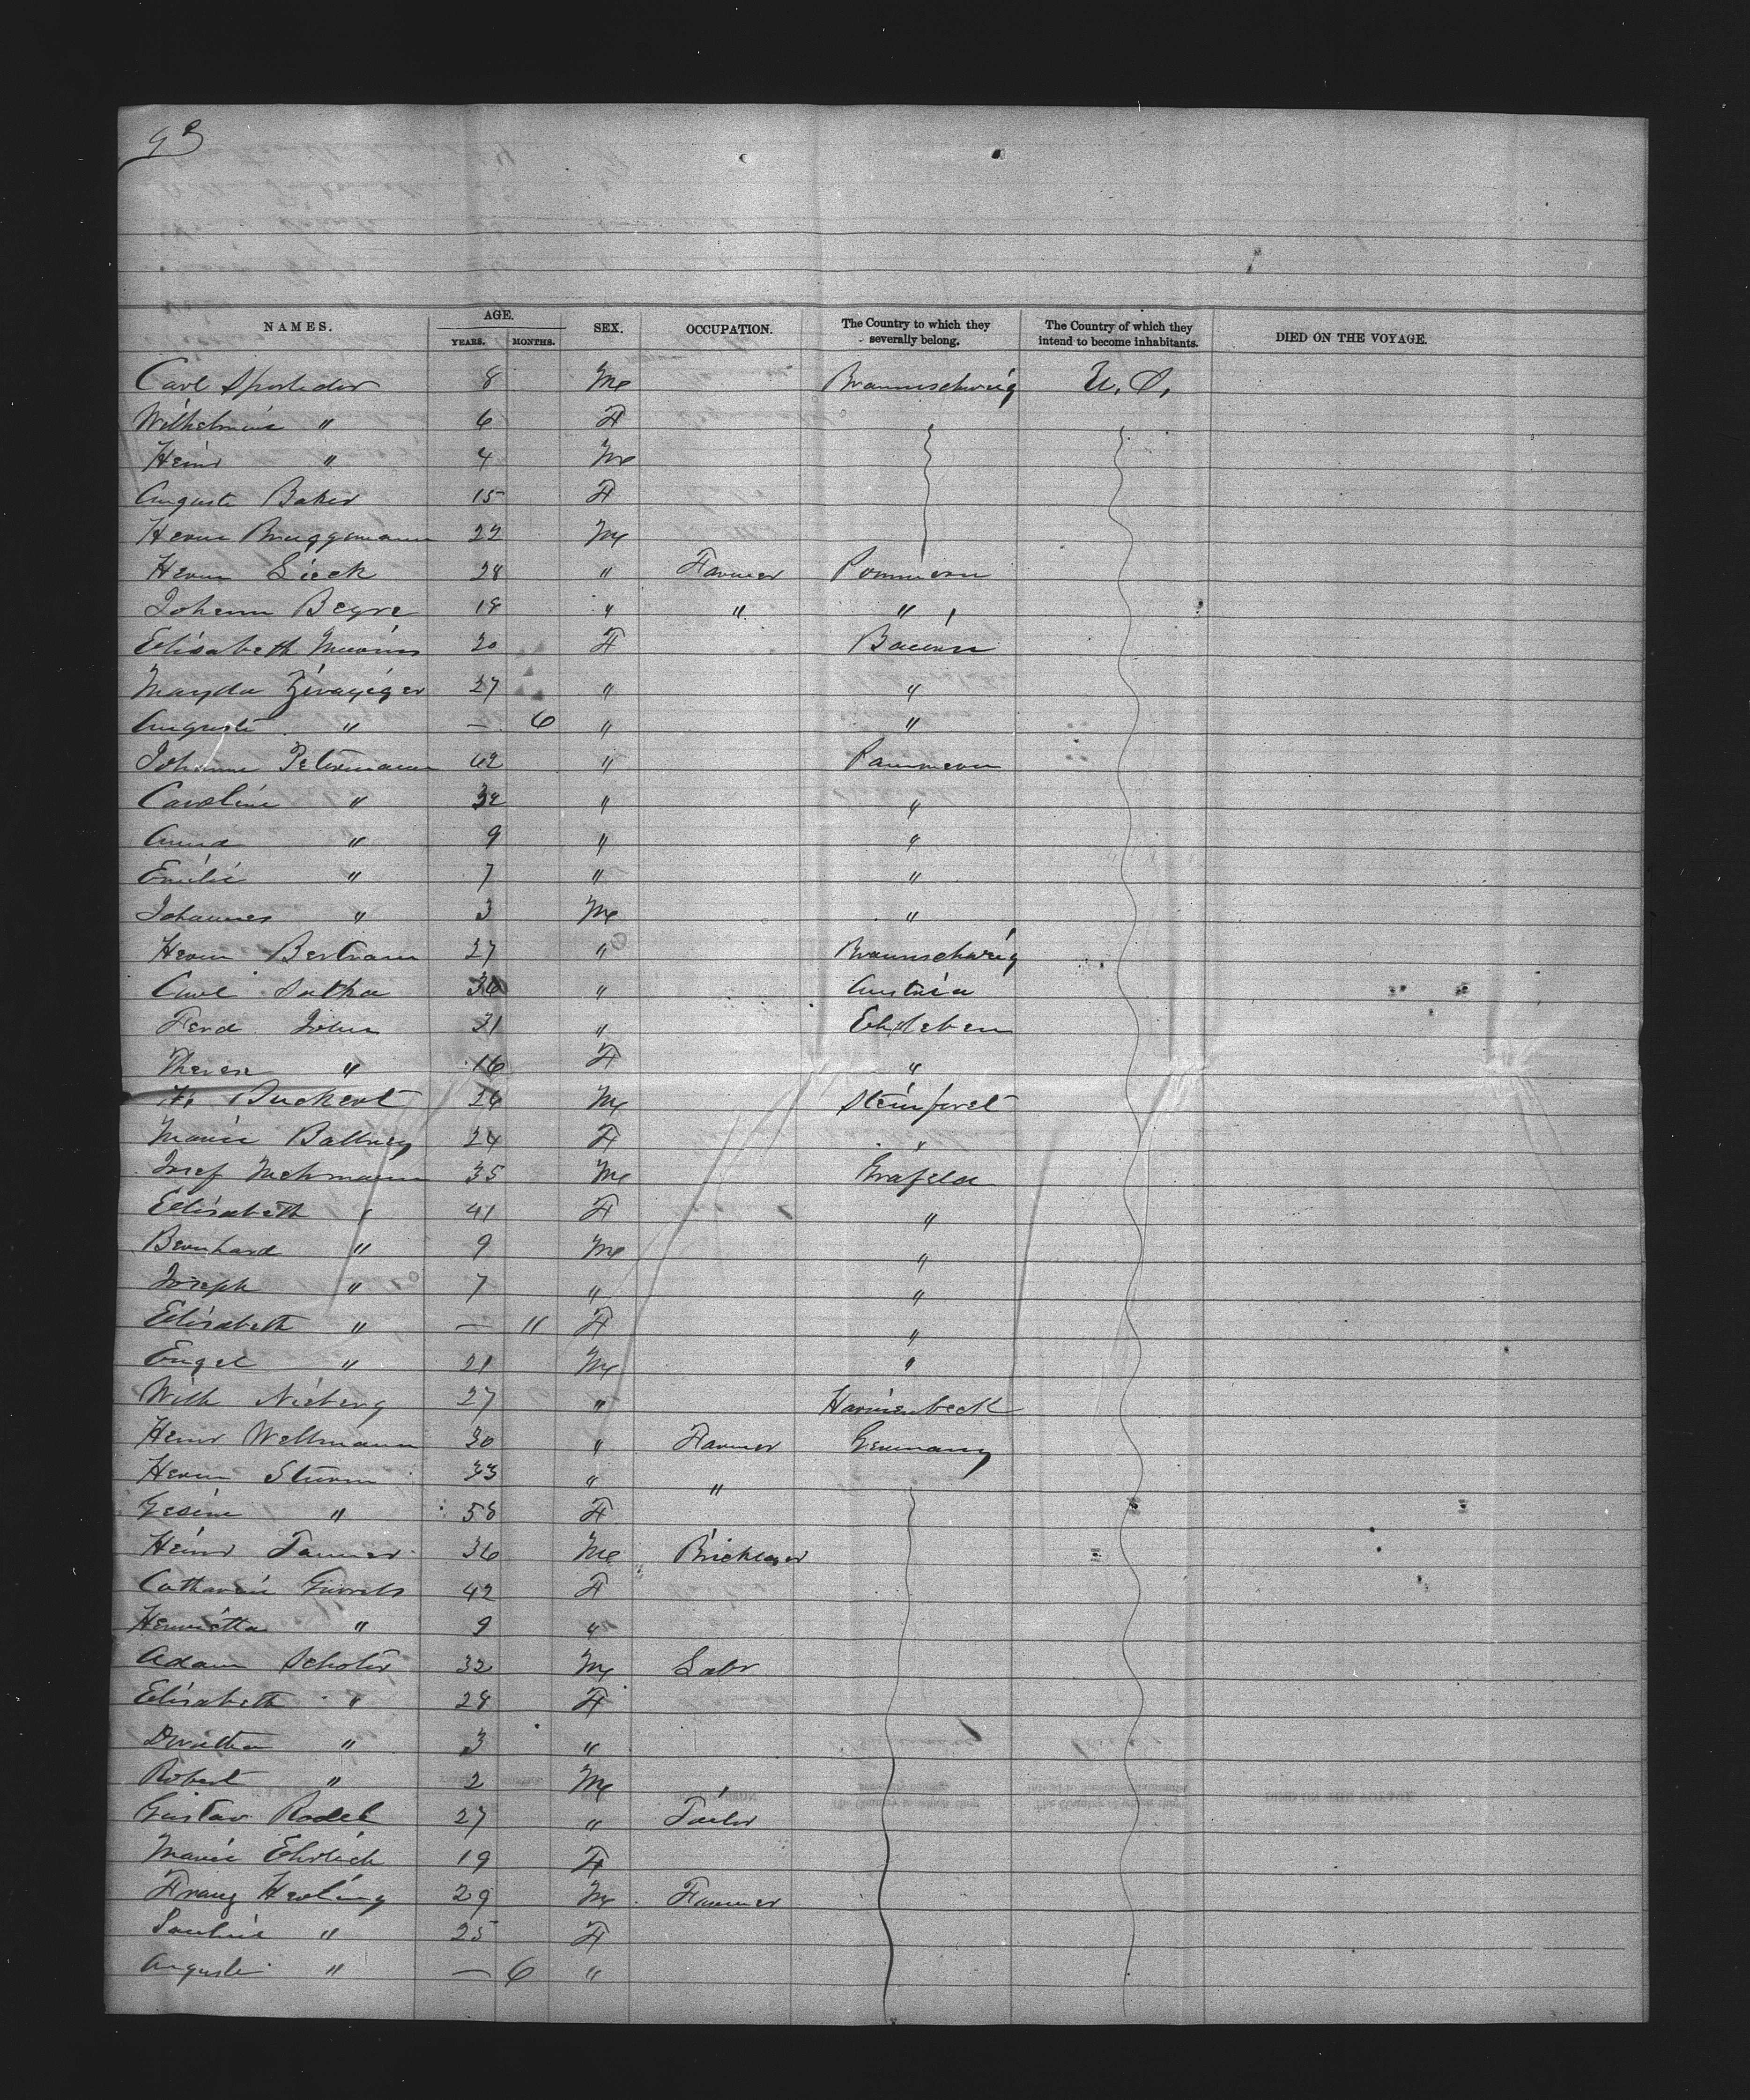 93
NAMES. AGE. YEARS. MONTHS. SEX. OCCUPATION. The Country to which they severally belong. The Country of which they intend to become inhabitants. DIED ON THE VOYAGE.
Carl 8 M Braunschweig U. S.
Wilhelmine " 6 F
Heinr " 4 M
Auguste Baker 15 F
Herm Bruggmann 22 M
Herm Sieck 28 " Farmer Pommern
Johann Beyre 19 " " "
Elisabeth 20 F Baiern
Magda 27 " "
Auguste " — 6 " "
Johanne Petermann 62 " Pommern
Caroline " 32 " "
Anna " 9 " "
Emilie " 7 " "
Johannes " 3 M "
Herm Bertram 27 " Braunschweig
Carl 36 " Austria
Ferd John 31 "
Therese " 16 F "
H. Buckert 26 M
Marie 24 F "
Josef 35 M Grafeld
Elisabeth " 41 F "
Bernhard " 9 M "
Joseph " 7 " "
Elisabeth " — 11 F "
Engel " 21 M "
Wilh Nieberg 27 "
Heinr Wellmann 30 " Farmer Germany
Herm Sturm 33 " "
Gesine " 58 F
Heinr 36 M Bricklayer
Catharine 42 F
Henrietta " 9 "
Adam 32 M Labr
Elisabeth " 28 F
Dorothea " 3 "
Robert " 2 M
Gustav Rodel 27 " Tailor
Marie Ehrlich 19 F
Franz Herling 29 M Farmer
Pauline " 25 F
Auguste " — 6 "